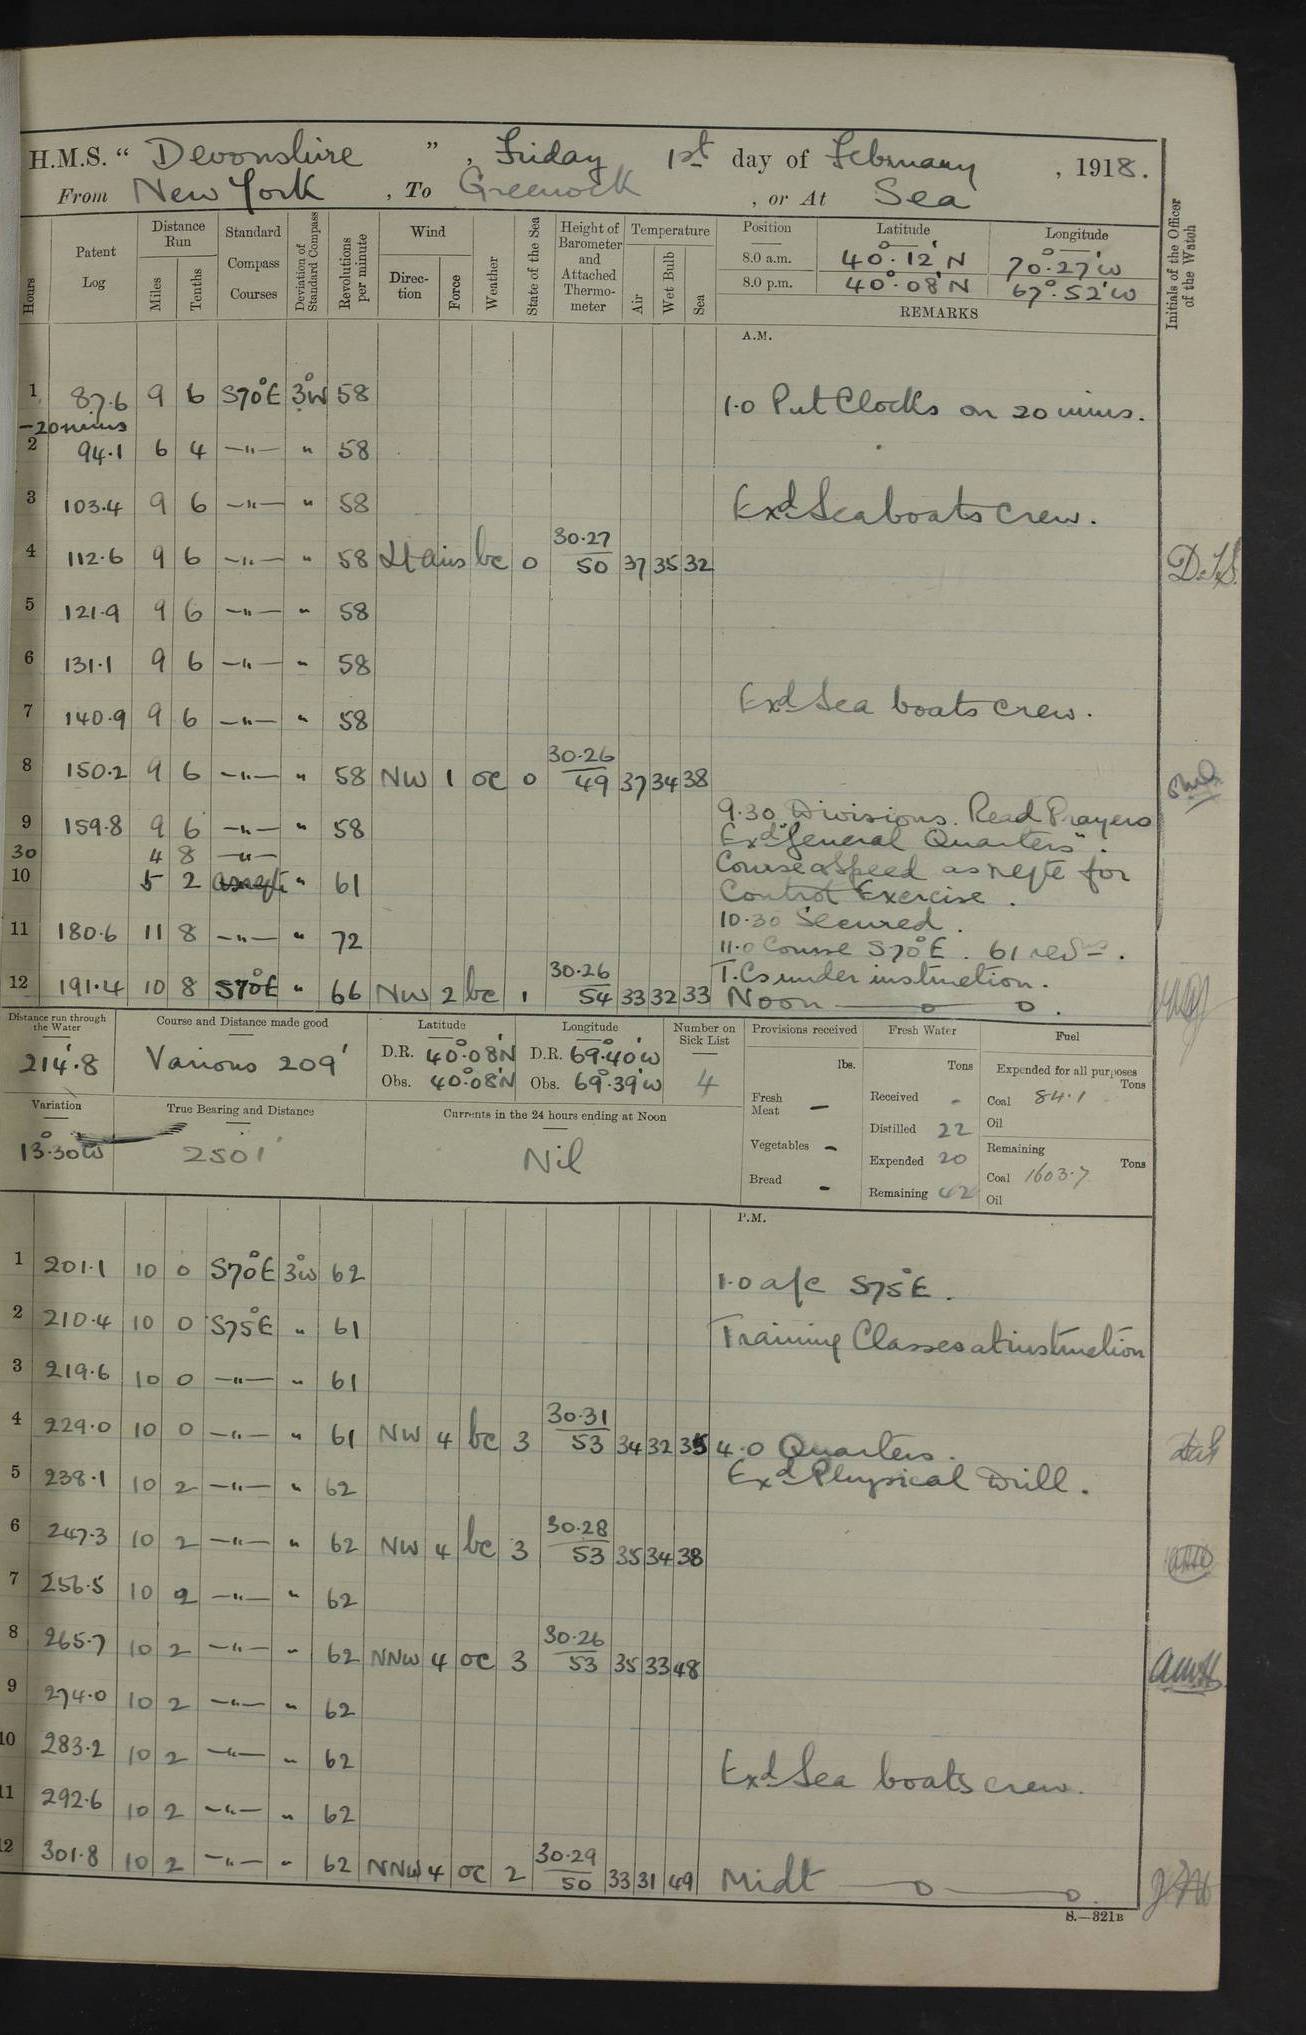 H.M.S. “ Devonshire ” , Friday 1st day of February , 1918.
From New York , To Greenock , or At Sea
Hours Patent Log Distance Run Miles Tenths Standard Compass Courses Deviation of Standard Compass Revolutions per minute Wind Direction Force Weather State of the Sea Height of Barometer and Attached Thermometer Temperature Air Wet Bulb Sea Initials of the Officer of the Watch
Position Latitude Longitude
8.0 a.m. 40°·12'N 70°·27'W
8.0 p.m. 40°·08'N 67°·52'W
REMARKS
A.M.
1 87.6 9 6 S70°E 3°W 58 1.0 Put Clocks on 20 mins.
-20 mins
2 94.1 6 4 —"— " 58
3 103.4 9 6 —"— " 58 Exd Seaboats Crew.
4 112.6 9 6 —"— " 58 Lt airs bc 0 30.27 50 37 35 32
5 121.9 9 6 —"— " 58
6 131.1 9 6 —"— " 58
7 140.9 9 6 —"— " 58 Exd Sea boats crew.
8 150.2 9 6 —"— " 58 NW 1 oc 0 30.26 49 37 34 38
9 159.8 9 6 —"— " 58 9.30 Divisions. Read Prayers
Exd "General Quarters".
30 4 8 —"— Course & Speed as reqte for
10 5 2 as reqte " 61 Control Exercise.
10.30 Secured.
11 180.6 11 8 —"— " 72 11.0 Course S70°E. 61 revs.
T.Cs under instruction.
12 191.4 10 8 S70°E " 66 NW 2 bc 1 30.26 54 33 32 33 Noon — o — o.
Distance run through the Water 214'.8
Course and Distance made good Various 209'
Latitude D.R. 40°·08'N Obs. 40°·08'N
Longitude D.R. 69°·40'W Obs. 69°·39'W
Number on Sick List 4
Provisions received lbs. Fresh Meat – Vegetables – Bread –
Fresh Water Tons Received - Distilled 22 Expended 20 Remaining 42
Fuel Expended for all purposes Tons Coal 84.1 Oil
Remaining Tons Coal 1603.7 Oil
Variation 13°·30'W
True Bearing and Distance 2501'
Currents in the 24 hours ending at Noon Nil
P.M.
1 201.1 10 0 S70°E 3°W 62 1.0 a/c S75°E.
2 210.4 10 0 S75°E " 61 Training Classes at instruction
3 219.6 10 0 —"— " 61
4 229.0 10 0 —"— " 61 NW 4 bc 3 30.31 53 34 32 35 4.0 Quarters.
5 238.1 10 2 —"— " 62 Exd Physical Drill.
6 247.3 10 2 —"— " 62 NW 4 bc 3 30.28 53 35 34 38
7 256.5 10 2 —"— " 62
8 265.7 10 2 —"— " 62 NNW 4 oc 3 30.26 53 35 33 48
9 274.0 10 2 —"— " 62
10 283.2 10 2 —"— " 62 Exd Sea boats crew.
11 292.6 10 2 —"— " 62
12 301.8 10 2 —"— " 62 NNW 4 oc 2 30.29 50 33 31 49 Midt — o — o.
S.—321B